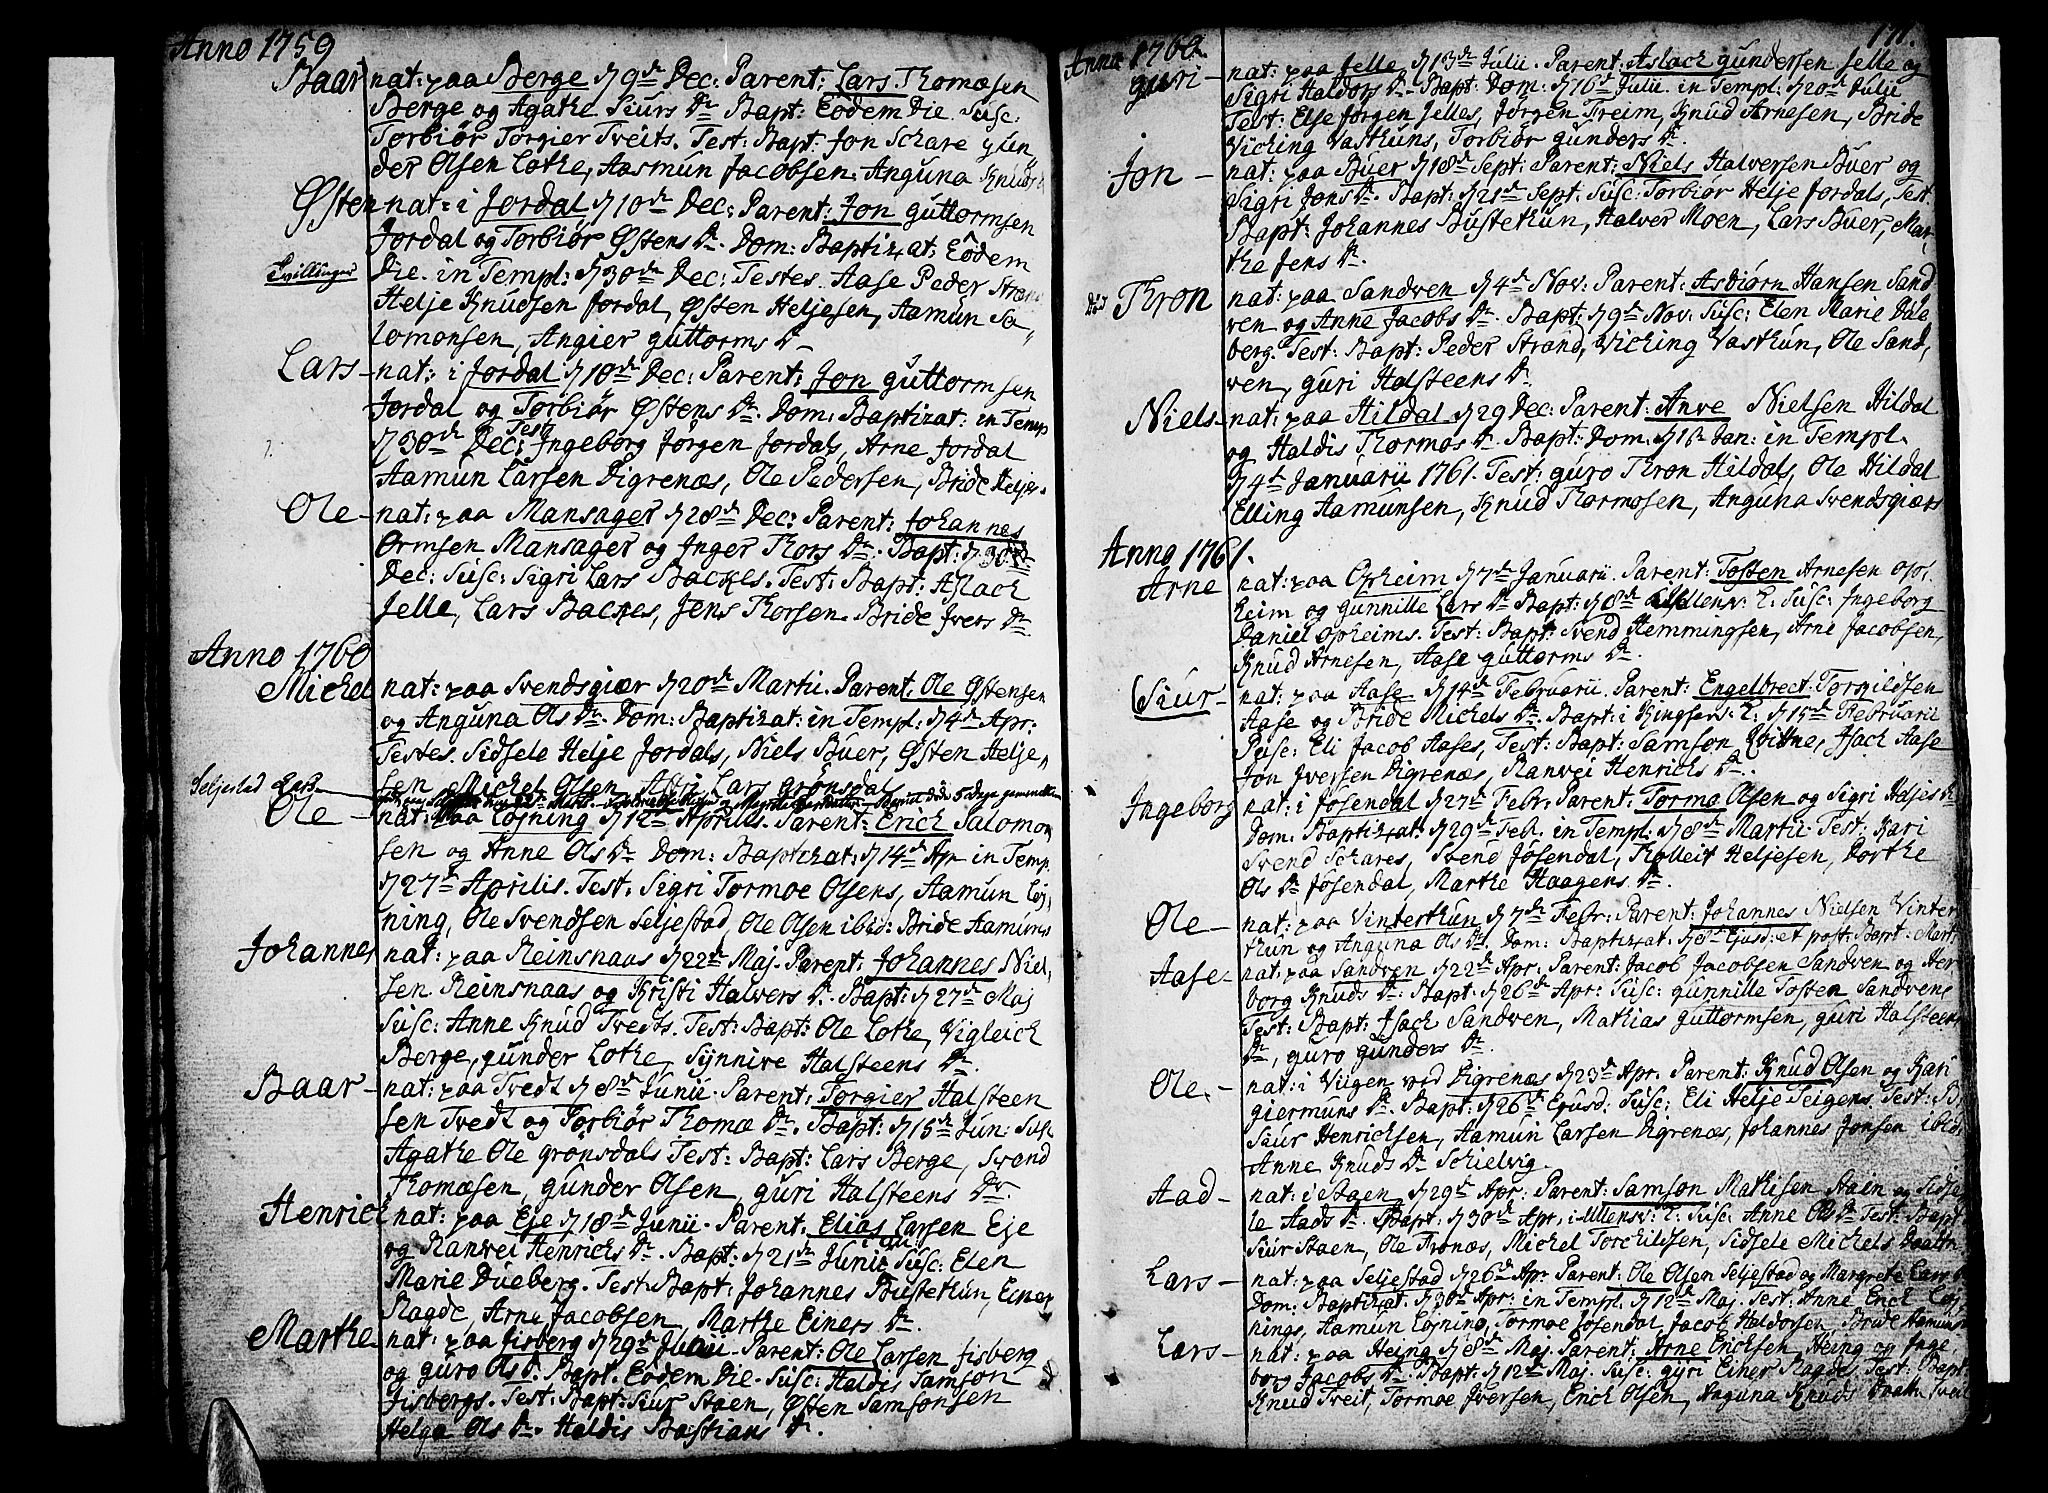 Anno 1759
Baar nat: paa Berge d 9de Dec: Parent: Lars Thomæsen
Berge og Agathe Siurs Dr Bapt: Eodem Die Susc:
Torbiør Torgier Tveits. Test: Bapt: Jon Schare gun
der Olsen Lothe, Aasmun Jacobsen. Anguna Knuds
Østen nat: i Jordal d 10de Dec: Parent: Jon guttormsen
Jordal og Torbiør Østens Dr. Dom: Baptizat: Eodem
Tvillinger Die. in Templ: d 30de Dec: Testes. Aase Peder Strand
Helje Knudsen Jordal, Østen Heljesen, Aamun Sa„
lomonsen, Angier guttorms Dr
Lars nat: i Jordal d 10de Dec: Parent: Jon guttormsen
Jordal og Torbiør Østens Dr. Dom: Baptizat: in Temp
d 30de Dec: Test: Ingeborg Jørgen Jordals, Arne Jordal
Aamun Larsen Digrenæs, Ole Pedersen, Bride Heljes.
Ole nat: paa Mansager d 28de Dec: Parent: Johannes
Ormsen Mansager og Inger Thors Dr. Bapt: d 30te
Dec: Susc: Sigri Lars Backes. Test: Bapt: Aslach
Jelle, Lars Backes, Jens Thorsen. Bride Ivers Dr
Anno 1760
Michel nat: paa Svendsgiær d 20de Martii. Parent: Ole Østensen
og Anguna Ols Dr. Dom: Baptizat: in Templ: d 4de Apr:
Testes. Sidsele Helje Jordals, Niels Buer, Østen Helje„
sen Michel Olsen, Lars Grønsdal
Seljestad Lars
Ole nat: paa Løyning d 12te Aprilis. Parent: Erich Salomon
sen og Anne Ols Dr Dom: Baptizat: d 14de Apr in Temp:
d 27de Aprilis. Test: Sigri Tormoe Olsens, Aamun Løy„
ning, Ole Svendsen Seljestad, Ole Olsen ibid: Bride Aamuns
Johannes nat: paa Reinsnaas d 22de Maj. Parent: Johannes Niel„
sen Reinsnaas og Kristi Halvers Dr. Bapt: d 27de Maj
Susc: Anne Knud Tveits. Test: Bapt: Ole Lothe, Vigleich
Berge, gunder Lothe, Synnive Halsteens Dr.
Baar nat: paa Tvedt d 8de Junii. Parent: Torgier Halsteen
sen Tvedt og Torbiør Thomæ Dr. Bapt: d 15de Jun: Susc
Agathe Ole Grønsdals Test: Bapt: Lars Berge, Svend
Thomæsen, gunder Olsen, guri Halsteens Dr.
Henrich nat: paa Eje d 18de Junii. Parent. Elias Larsen Eje
og Ranvei Henrichs Dr. Bapt: d 21de Junii Susc: Elen
Marie Dueberg. Test: Bapt: Johannes Bustethun, Einer
Ragde, Arne Jacobsen, Marthe Einers Dr.
Marthe nat: paa Jisberg d 29de Junii. Parent: Ole Larsen Jisberg
og guro Ols D. Bapt. Eodem Die. Susc: Haldis Samson
Jisbergs. Test: Bapt: Siur Staen, Østen Samsonsen
Helga Ols Dr. Haldis Bastians Dr.
171.
Anno 1760
guri nat: paa Jelle d 13de Julii. Parent: Aslach gundersen Jelle og
Sigri Haldors Dr. Bapt: Dom: d 16de Julii. in Templ: d 20de Julii
Test: Else Jørgen Jelles, Jørgen Freim, Knud Arnesen, Bride
Viching Vasthuns, Torbiør gunders Dr.
Jon nat: paa Buer d 18de Sept: Parent: Niels Halversen Buer og
Sigri Jons Dr. Bapt: d 21de Sept: Susc: Torbiør Helje Jordals, Test.
Bapt: Johannes Bustethun, Halver Moen, Lars Buer, Mar„
the Jens Dr.
Død Thron nat: paa Sandven d 4de Nov: Parent: Asbiørn Hansen Sand
ven og Anne Jacobs Dr. Bapt: d 9de Nov: Susc: Elen Marie Due
berg. Test: Bapt: Peder Strand, Viching Vasthun, Ole Sand„
ven, guri Halsteens Dr.
Niels nat: paa Hildal d 29 Dec: Parent: Arve Nielsen Hildal
og Haldis Thormos Dr. Bapt: Dom: d 1te Jan: in Templ.
d 4de Januarii 1761. Test: guro Thron Hildals, Ole Hildal
Elling Aamunsen, Knud Thormosen, Anguna Svendsgiærs
Anno 1761.
Arne nat: paa Opheim d 7de Januarii. Parent: Tosten Arnesen Op„
heim og Gunnille Lars Dr. Bapt: d 8de i Ullensv: K: Susc: Ingeborg
Daniel Opheims. Test: Bapt: Svend Hemmingsen, Arne Jacobsen,
Knud Arnesen, Aase guttorms Dr.
Siur nat: paa Aase d 14de Februarii. Parent: Engelbrect Torkildsen
Aase og Bride Michels Dr. Bapt: i Kingserv: K: d 15de Februarii
Susc: Eli Jacob Aases, Test: Bapt: Samson Qvittne, Isach Aase
Jon Iversen Digrenæs, Ranvei Henrichs Dr.
Ingeborg nat: i Jøsendal d 27de Febr: Parent: Tormo Olsen og Sigri Heljes Dr
Dom: Baptizat: d 29de Feb. in Templ: d 8de Martii: Test: Kari
Svend Schares, Svend Jøsendal, Tholleif Heljesen, Dorthe
Ols Dr Jøsendal, Marthe Haagens Dr.
Ole nat: paa Vinterthun d 7de Febr: Parent: Johannes Nielsen Vinter
thun og Anguna Ols Dr. Dom: Baptizat: d 8de Ejusd: et post: Bapt: Mart
Aase nat: paa Sandven d 22de Apr: Parent: Jacob Jacobsen Sandven og Her
borg Knuds Dr: Bapt: d 26de Apr: Susc: gunnille Tosten Sandvens
Test: Bapt: Isach Sandven, Mathias guttormsen, guri Halsteens
Dr, guro gunders Dr.
Ole nat: i Viigen ved Digrenæs d 23de Apr. Parent: Knud Olsen og Kari
giermuns Dr. Bapt: d 26de Ejusd: Susc: Eli Helje Teigens. Test: B.
Siur Henrichsen, Aamun Larsen Digrenæs, Johannes Jonsen ibid.
Anne Knuds Dr Schielvig.
Aad nat: i Staen d 29de Apr: Parent: Samson Mathisen Staen og Sidse
le Aads Dr. Bapt: d 30de Apr. i Ullensv: K: Susc: Anne Ols Dr Test: Bapt
Siur Staen, Ole Tronæs, Michel Torchildsen, Sidsele Michels Daattr
Lars nat: paa Seljestad d 26de Apr: Parent: Ole Olsen Seljestad og Margrete Lars D
Dom: Baptizat: d 30de Apr: in Templ: d 12de Maj. Test: Anne Erich Løy
nings, Aamun Løyning, Tormoe Jøsendal, Jacob Haldorsen, Bride Aamuns
Lars nat: paa Heing d 8de Maj. Parent: Arne Erichsen Heing og Inge
borg Jacobs Dr. Bapt: d 12de Maj. Susc: guri Einer Ragdes Test: Bapt:
Knud Tveit, Tormoe Iversen, Erich Olsen, Naguna Knuds Daattr Tveit